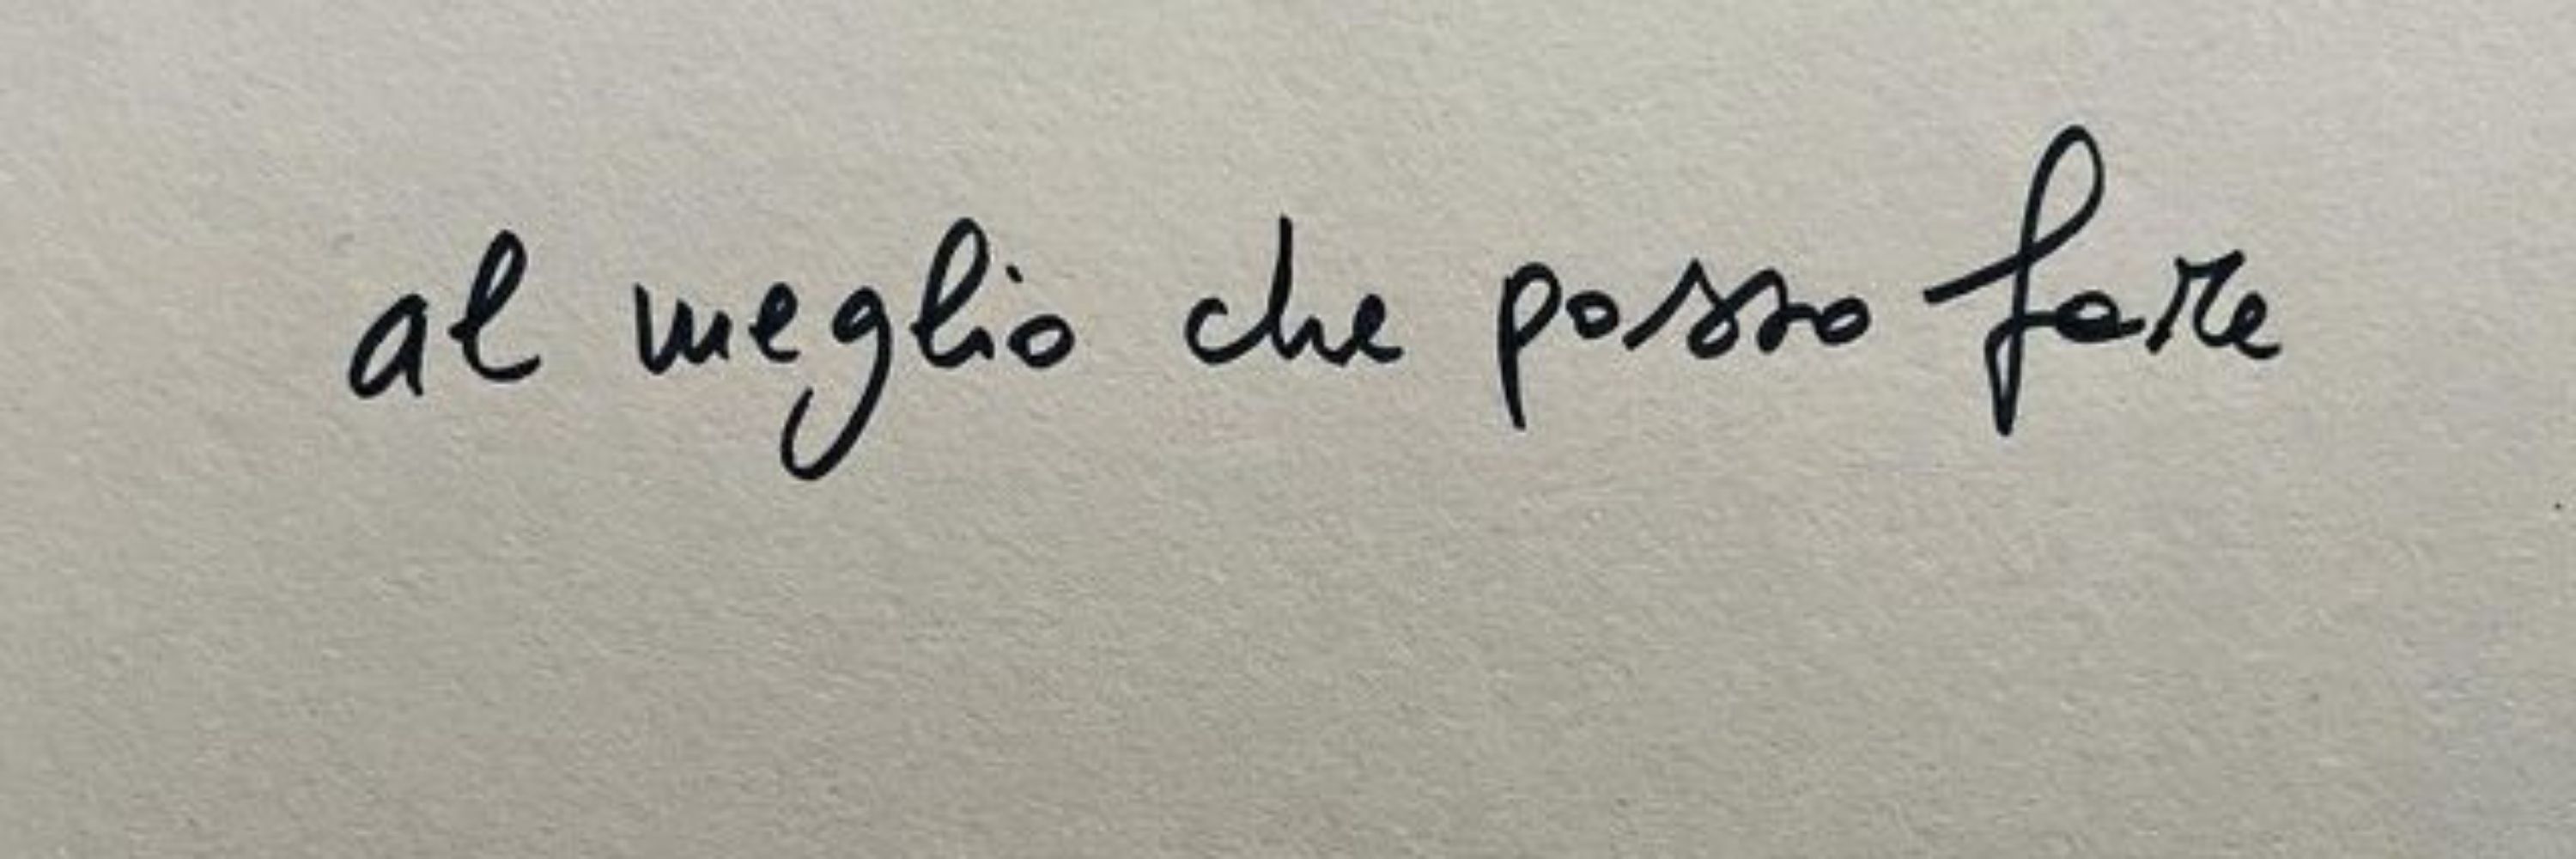 al meglio che posso fare